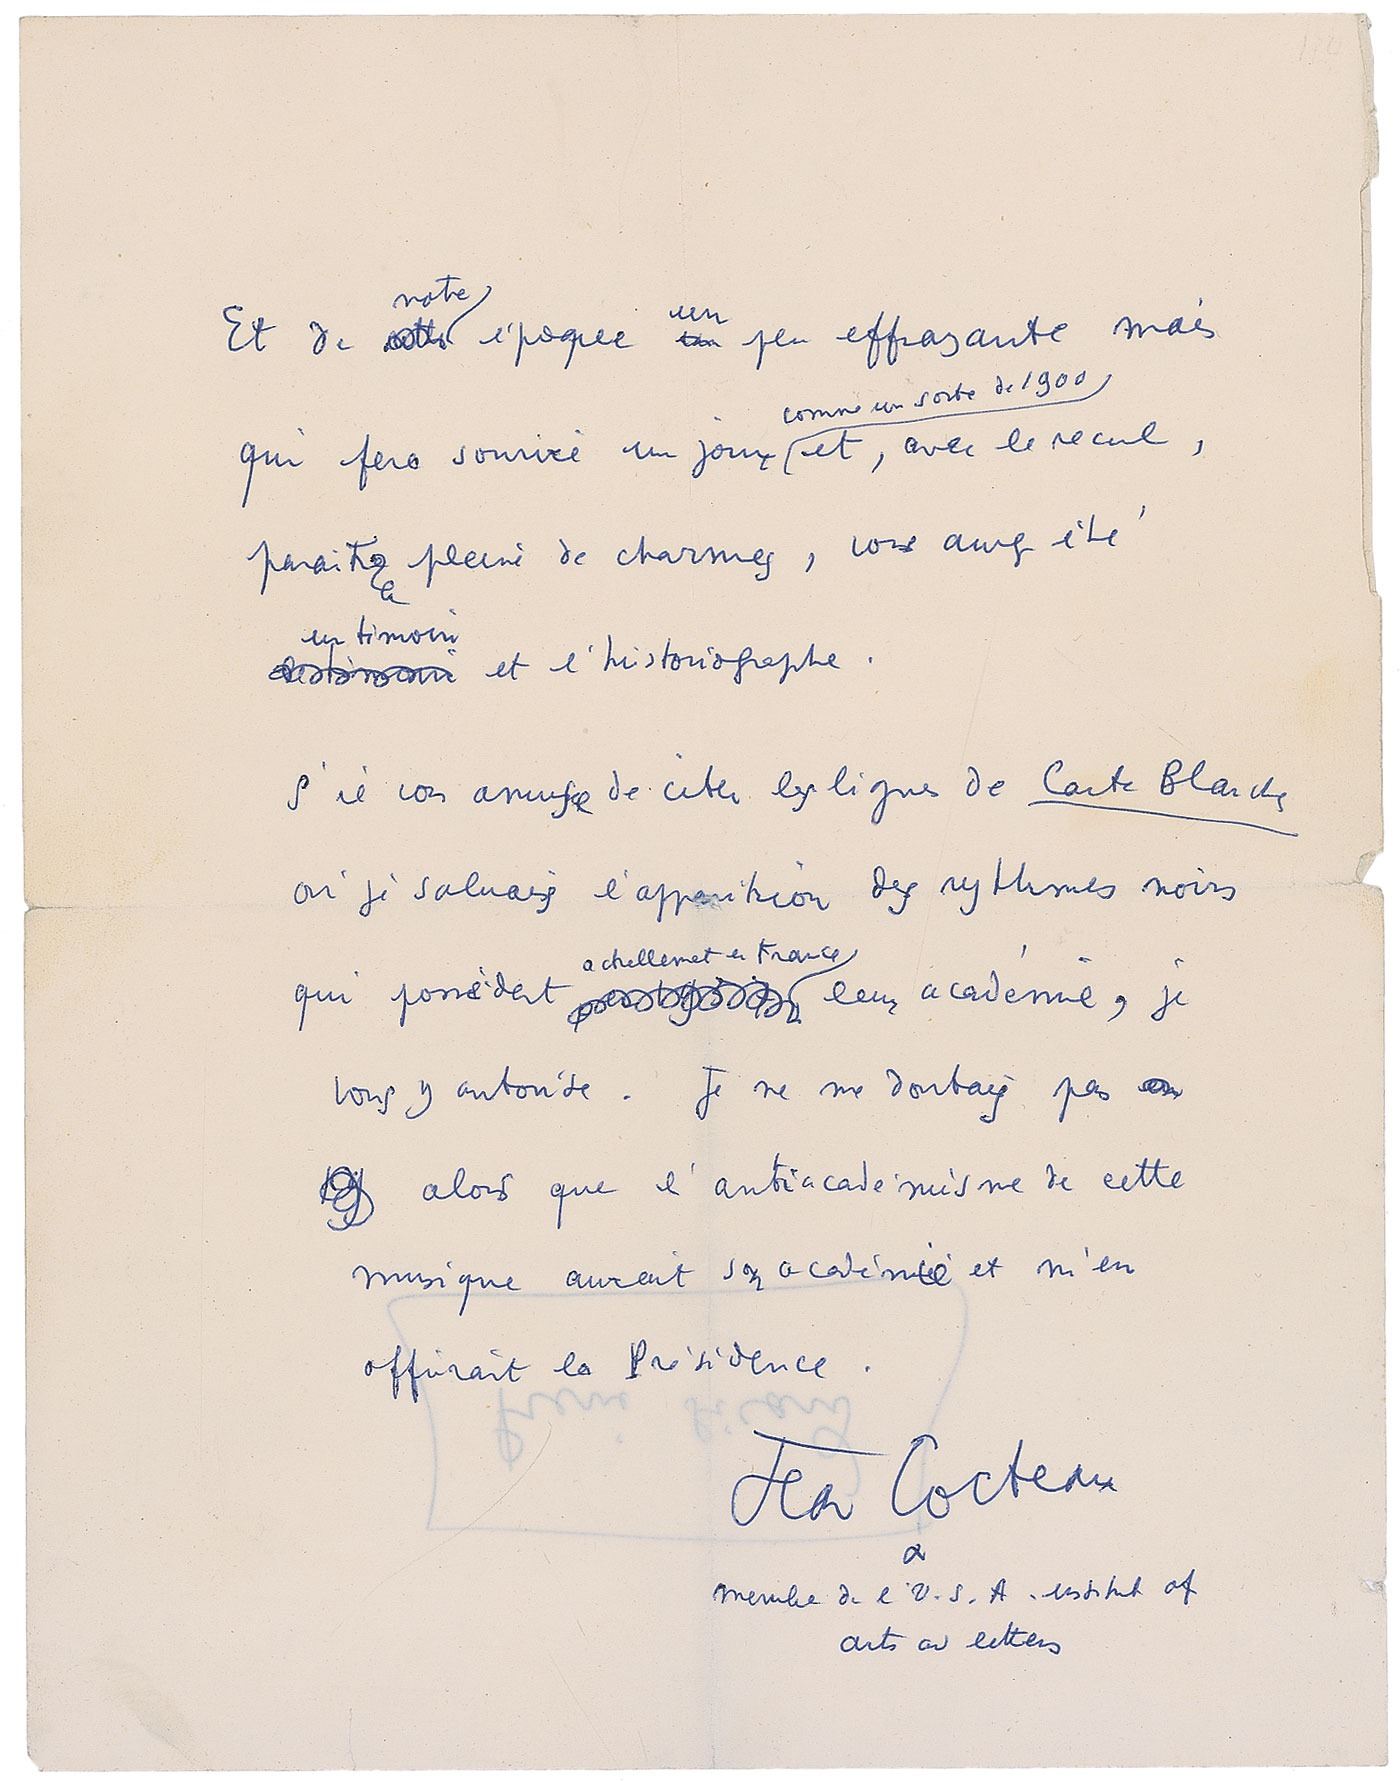 notre
Et de époque un peu effrayante mais
comme un sorte de 1900
qui fera sourire un jour et, avec le recul,
paraitra pleine de charmes, vous aurez été
un témoin
et l'historiographe.
S'il vous amuse de citer les lignes de Carte Blanche
où je saluais l'apparition des rythmes noirs
actuellement en France
qui possèdent leur académie, je
vous y autorise. Je ne me doutais pas
alors que l'antiacadémisme de cette
musique aurait son académie et m'en
offrirait la Présidence.
Jean Cocteau
membre de l'U.S.A. institut of
arts and letters